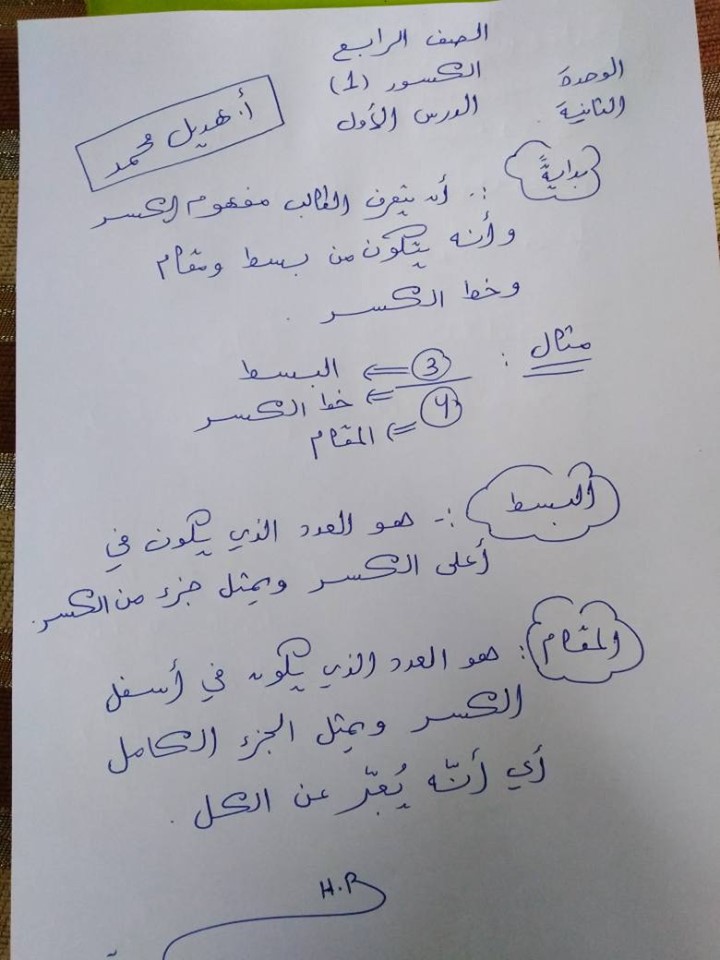 الصف الرابع
الوحدة الكسور (1)
الثانية الدرس الأول
أ. هديل محمد
بدايةً :- أن يتعرف الطالب مفهوم الكسر
وأنه يتكون من بسط ومقام
وخط الكسر .
مثال :
3 ⇐ البسط
⇐ خط الكسر
4 ⇐ المقام
البسط :- هو العدد الذي يكون في
أعلى الكسر ويمثل جزء من الكسر.
المقام : هو العدد الذي يكون في أسفل
الكسر ويمثل الجزء الكامل
أي أنّه يُعبّر عن الكل .